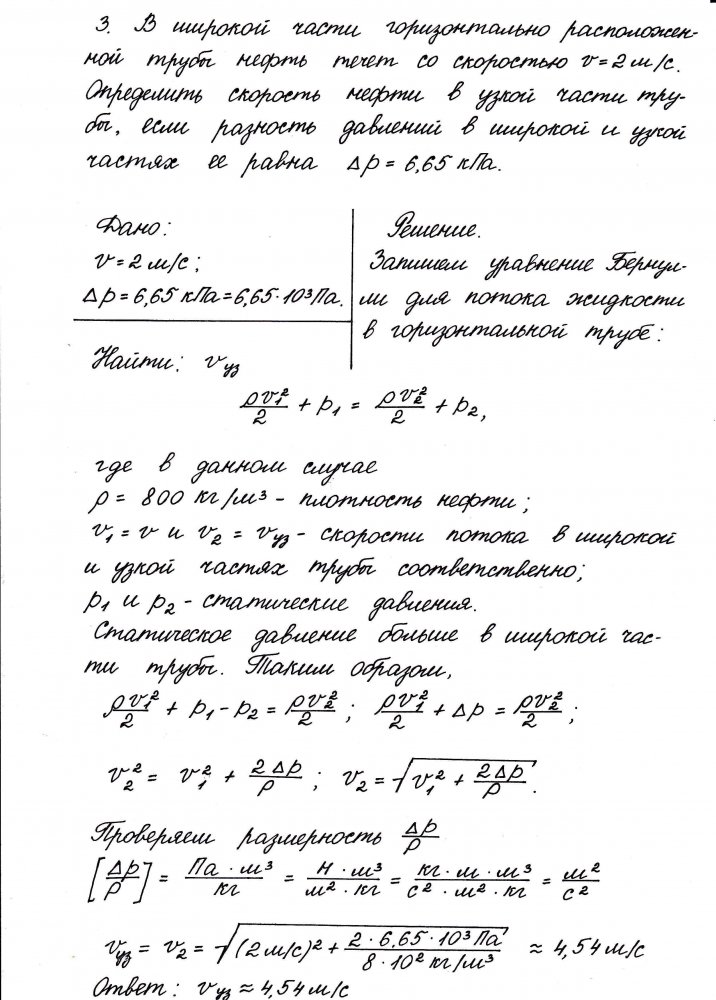 3. В широкой части горизонтально расположен-
ной трубы нефть течет со скоростью v = 2 м/с.
Определить скорость нефти в узкой части тру-
бы, если разность давлений в широкой и узкой
частях ее равна Δp = 6,65 кПа.
Дано:
v = 2 м/с;
Δp = 6,65 кПа = 6,65·10³ Па.
Найти: v_уз
Решение.
Запишем уравнение Бернул-
ли для потока жидкости
в горизонтальной трубе:
ρv₁²/2 + p₁ = ρv₂²/2 + p₂,
где в данном случае
ρ = 800 кг/м³ - плотность нефти;
v₁ = v и v₂ = v_уз - скорости потока в широкой
и узкой частях трубы соответственно;
p₁ и p₂ - статические давления.
Статическое давление больше в широкой час-
ти трубы. Таким образом,
ρv₁²/2 + p₁ - p₂ = ρv₂²/2; ρv₁²/2 + Δp = ρv₂²/2;
v₂² = v₁² + 2Δp/ρ; v₂ = √(v₁² + 2Δp/ρ).
Проверяем размерность Δp/ρ
[Δp/ρ] = Па·м³/кг = Н·м³/м²·кг = кг·м·м³/с²·м²·кг = м²/с²
v_уз = v₂ = √((2 м/с)² + 2·6,65·10³ Па/8·10² кг/м³) ≈ 4,54 м/с
Ответ: v_уз ≈ 4,54 м/с